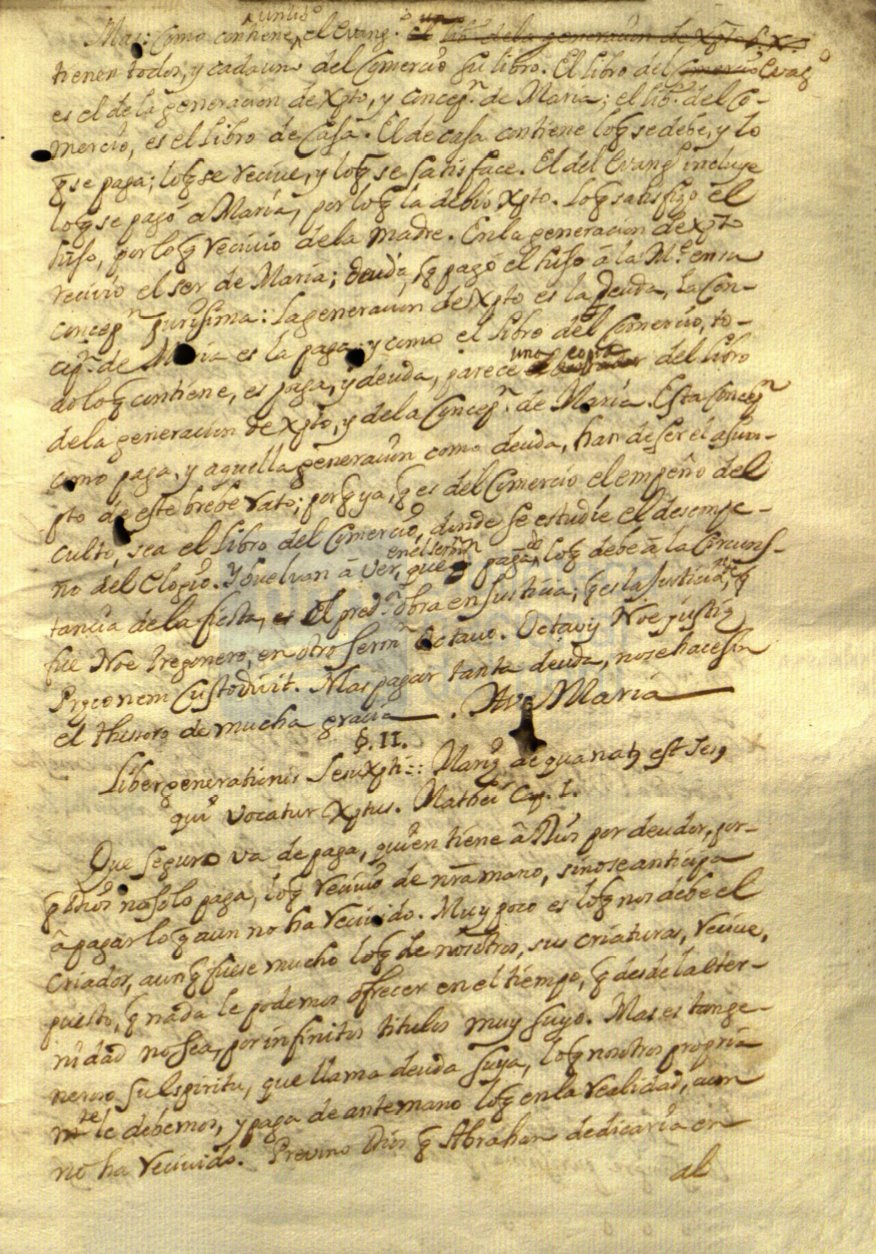 Mas: Como contiene, un libro el Evang.o el lib.o de la generacion de Xpto S.X.
tienen todos, y cada uno del Comercio su libro. El libro del Comercio Evang.o
es el de la generacion de Xpto, y concep.n de Maria; el lib.o del Co-
mercio, es el Libro de Casa. El de casa contiene lo q̃ se debe, y lo
q̃ se paga; lo q̃ se recive, y lo q̃ se satisface. El del Evang.o incluye
lo q̃ se pagò â Maria, por lo q̃ la debiò Xpto. Lo q̃ satisfizo el
hijo, por lo q̃ reciviò de la madre. En la generacion de Xpto
reciviò el ser de Maria; deuda, q̃ pagò el hijo â la M.e en su
concep.n purisima: La generacion de Xpto es la deuda, la Con-
cep.n de Maria es la paga, y como el libro del Comercio, to-
do lo q̃ contiene, es paga, y deuda, parece una copia del libro
de la generacion de Xpto, y de la Concep.n de Maria. Esta Concep.n
como paga, y aquella generacion como deuda, han de ser el asun-
pto de este brebe rato; porq̃ ya, q̃ es del Comercio el empeño del
culto, sea el Libro del Comercio, donde se estudie el desempe-
ño del Elogio. Y buelvan â ver, que en el serm.n pagado lo q̃ debe â la Circuns-
tancia de la fiesta, es el pred.or obra en Justicia; q̃ es la Justicia, q̃
fue Noe Pregonero, en otro serm.n Octavo. Octavũ Noe justiq̃
Pręconem Custodivit. Mas pagar tanta deuda, no se hace sin
el thesoro de mucha gracia. Ave Maria
§. II.
Liber generationis Jesu Xpti: Mariq̃ de qua nat9 est Jes9
qui vocatur Xptus. Mathei Cap. I.
Que seguro va de paga, quien tiene â Dios por deudor, por-
q̃ Dios no solo paga, lo q̃ reciviò de nr̃a mano, sino se anticipa
â pagar lo q̃ aun no ha recivido. Muy poco es lo q̃ nos debe el
Criador, aunq̃ fuese mucho lo q̃ de nosotros, sus criaturas, recive,
puesto, q̃ nada le podemos ofrecer en el tiempo, q̃ desde la eter-
nidad no sea, por infinitos titulos muy suyo. Mas es tan ge-
neroso su espiritu, que llama deuda suya, lo q̃ nosotros propria
m.te le debemos, y paga de antemano lo q̃ en la realidad, aun
no ha recivido. Previno Dios q̃ Abrahan dedicaria en
al